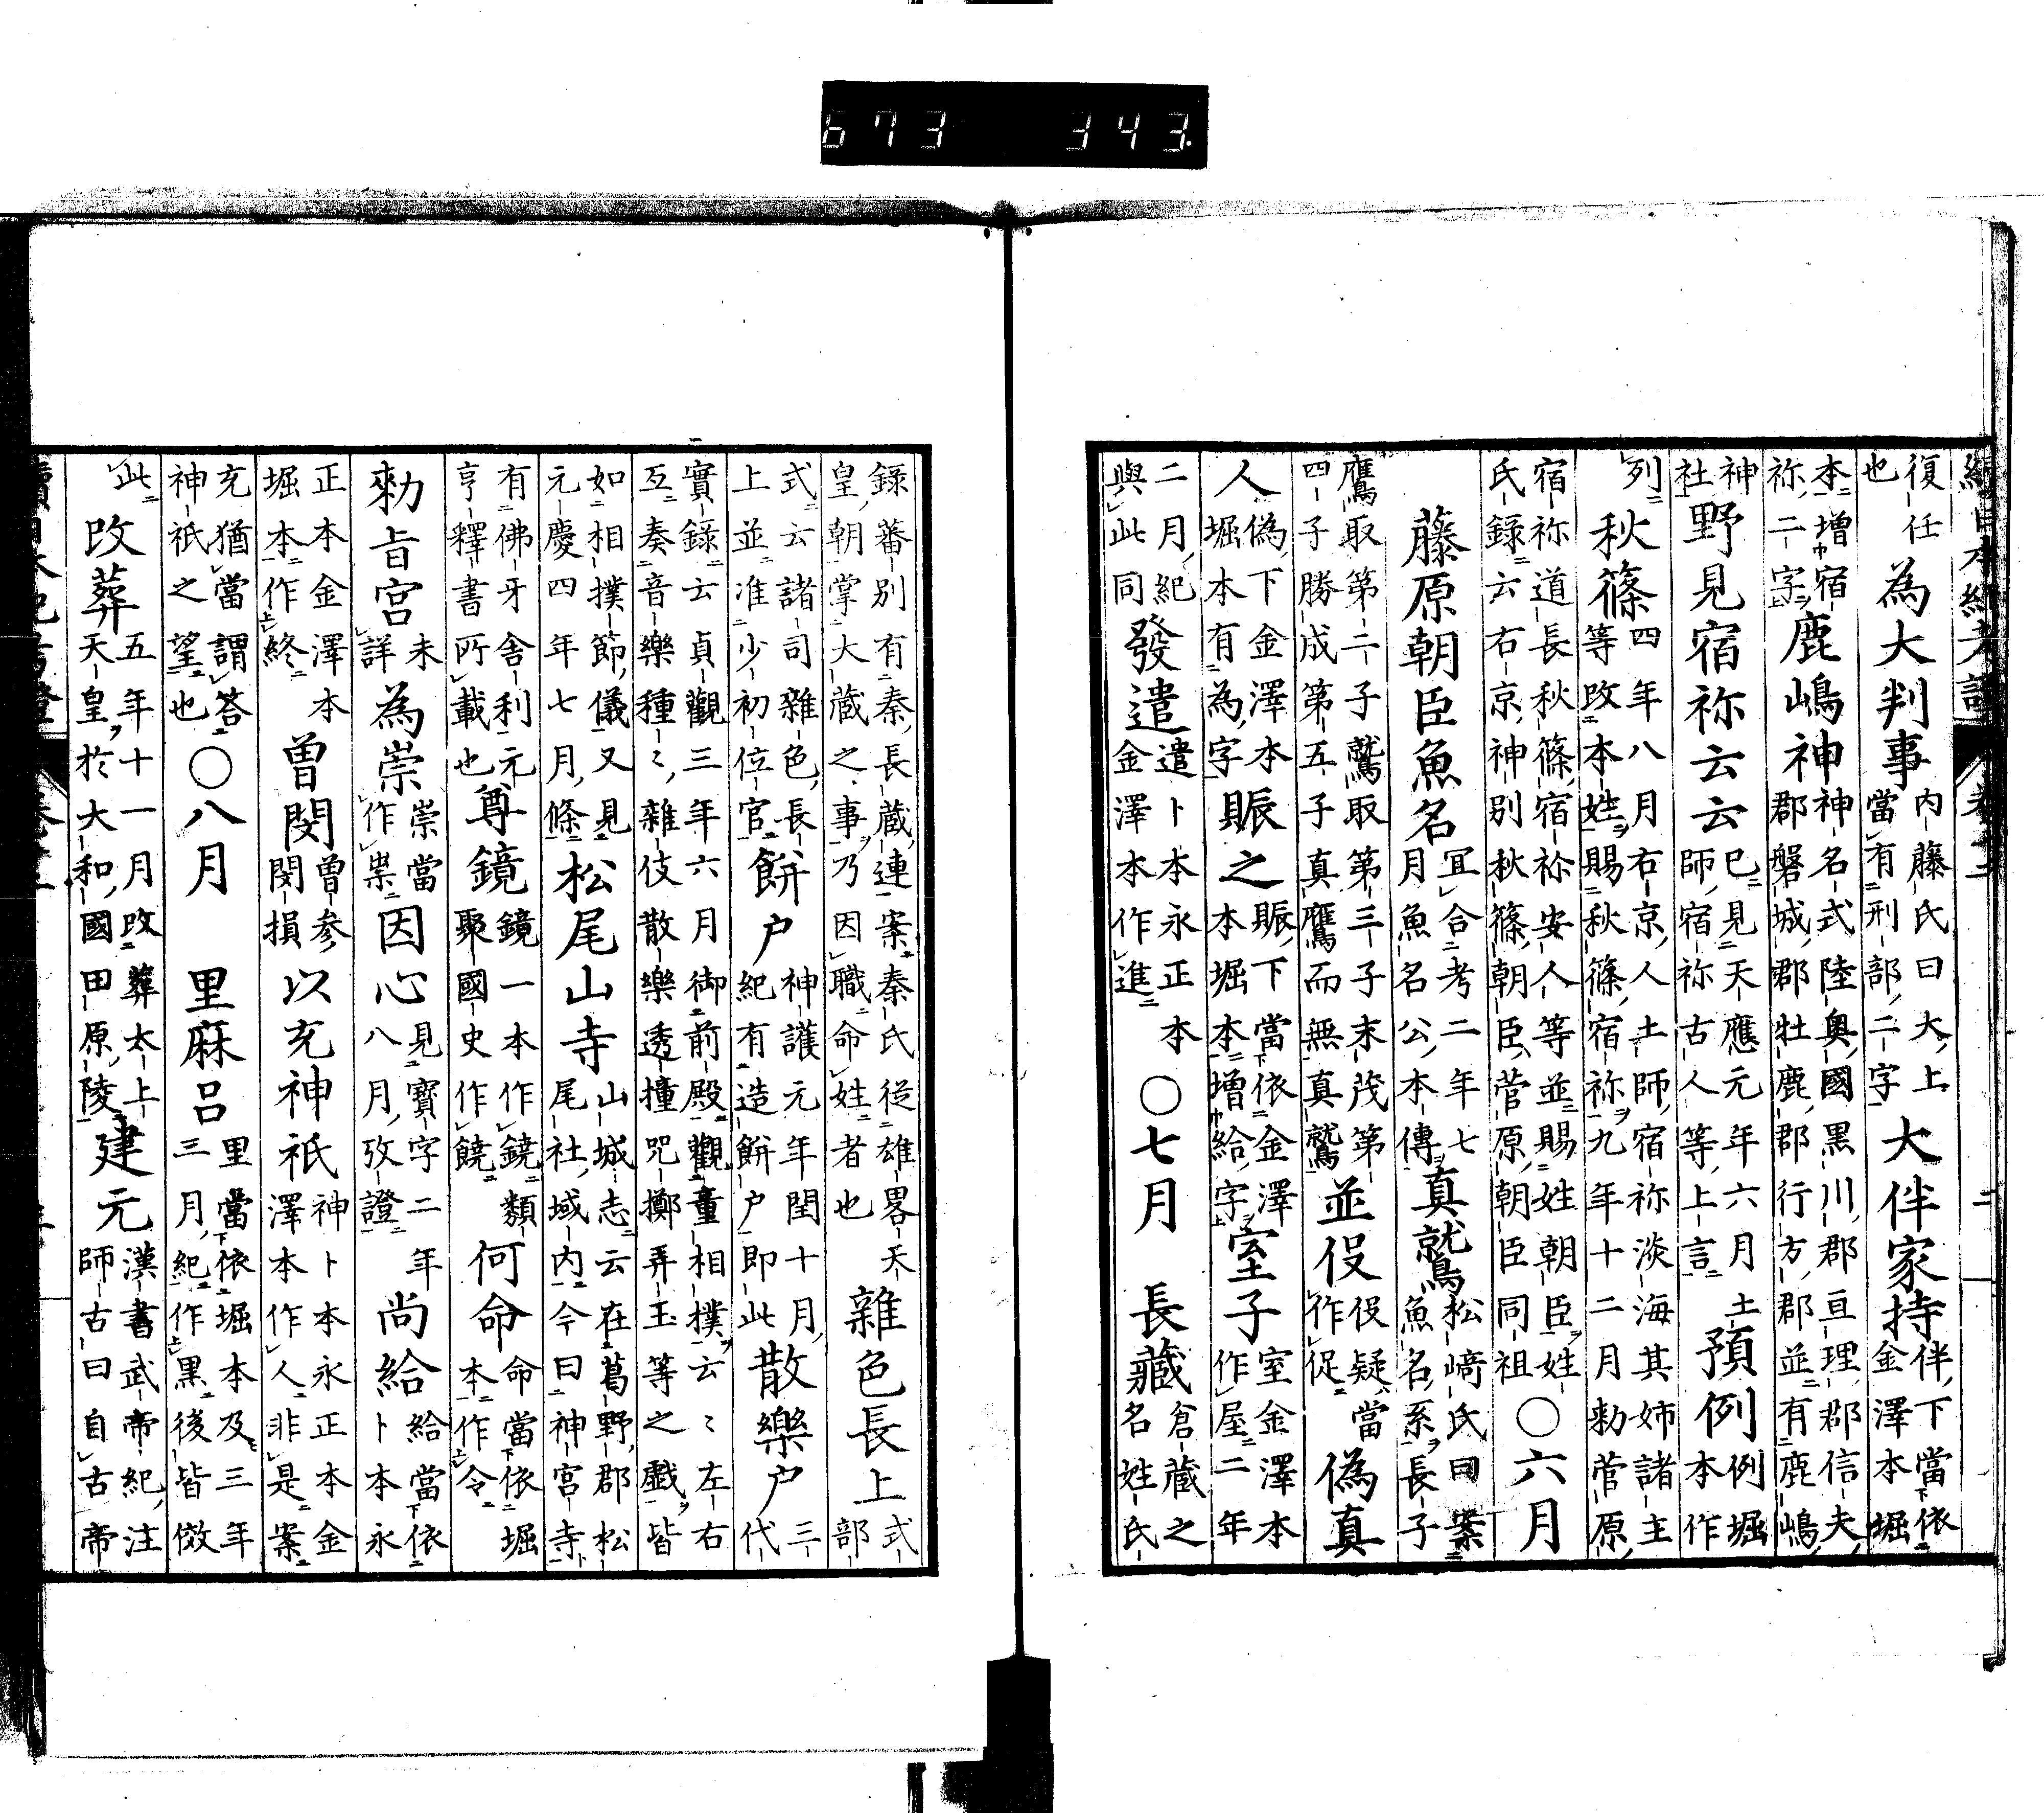 673 343.
續日本紀考證 卷十二 二
復任也 為大判事 內藤氏曰大上當有刑部二字 大伴家持 伴下當依金澤本堀
本增宿祢二字 鹿嶋神 神名式陸奥國黒川郡亘理郡信夫郡磐城郡牡鹿郡行方郡並有鹿嶋
神社 野見宿祢云云 已見天應元年六月土師宿祢古人等上言 預例 例堀本作
列 秋篠 四年八月右京人土師宿祢淡海其姉諸主等改本姓賜秋篠宿祢九年十二月勅菅原
宿祢道長秋篠宿祢安人等並賜姓朝臣姓氏錄云右京神別秋篠朝臣菅原朝臣同祖 〇六月
藤原朝臣魚名 冝合考二年七月魚名公本傳 真鷲 松﨑氏曰案魚名系長子
鷹取第二子鷲取第三子末茂第四子勝成第五子真鷹而無真鷲 並伇 伇疑當作促 偽真
人 偽下金澤本堀本有為字 賑之 賑下當依金澤本堀本增給字 室子 室金澤本作屋二年
二月紀與此同 發遣 遣卜本永正本金澤本作進 〇七月 長藏 倉藏之名姓氏
錄蕃別有秦長藏連案秦氏從雄畧天皇朝掌大藏之事乃因職命姓者也 雜色長上 式部
式云諸司雜色長上並准少初位官 餅户 神護元年閏十月紀有造餅户即此 散樂户 三代
實錄云貞觀三年六月御前殿觀童相撲云々左右互奏音樂種々雜伎散樂透撞咒擲弄玉等之戲皆
如相撲節儀又見元慶四年七月條 松尾山寺 山城志云在葛野郡松尾社域内今曰神宮寺
有佛牙舎利元亨釋書所載也 尊鏡 鏡一本作鐃類聚國史作饒 何命 命當依堀本作令
勅旨宮 未詳 為崇 崇當作祟 因心 見寶字二年八月攷證 尚給 給當依卜本永
正本金澤本堀本作終 曽閔 曽參閔損 以充神祇 神卜本永正本金澤本作人非是案
充猶當謂答神祇之望也 〇八月 里麻呂 里當依堀本及三年三月紀作黒後皆倣
此 改葬 五年十一月改葬太上天皇於大和國田原陵 建元 漢書武帝紀注師古曰自古帝